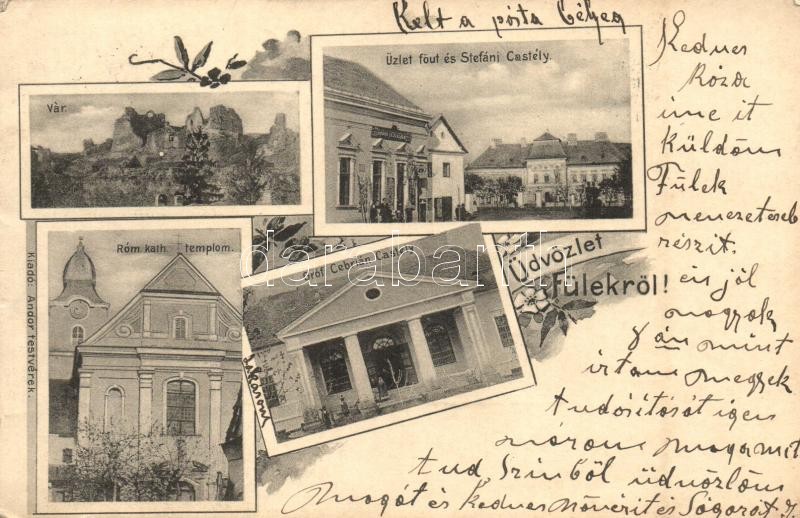 Kelt a pósta bélyeg
Üzlet föut és Stefáni Castély.
Vàr.
Róm. kath. templom.
Gróf Cebrián Castély
Üdvözlet
Fülekröl!
Kiadó: Andor testvérek.
darabanth.com
Kedves
Róza
ime it
Küldöm
Fülek
nevezetesebb
részit.
én jól
vagyok
mint
irtam megyek
tudósitását igen
várom magamat
üdvözlöm
Magát és Kedves Növérit és Sógorát